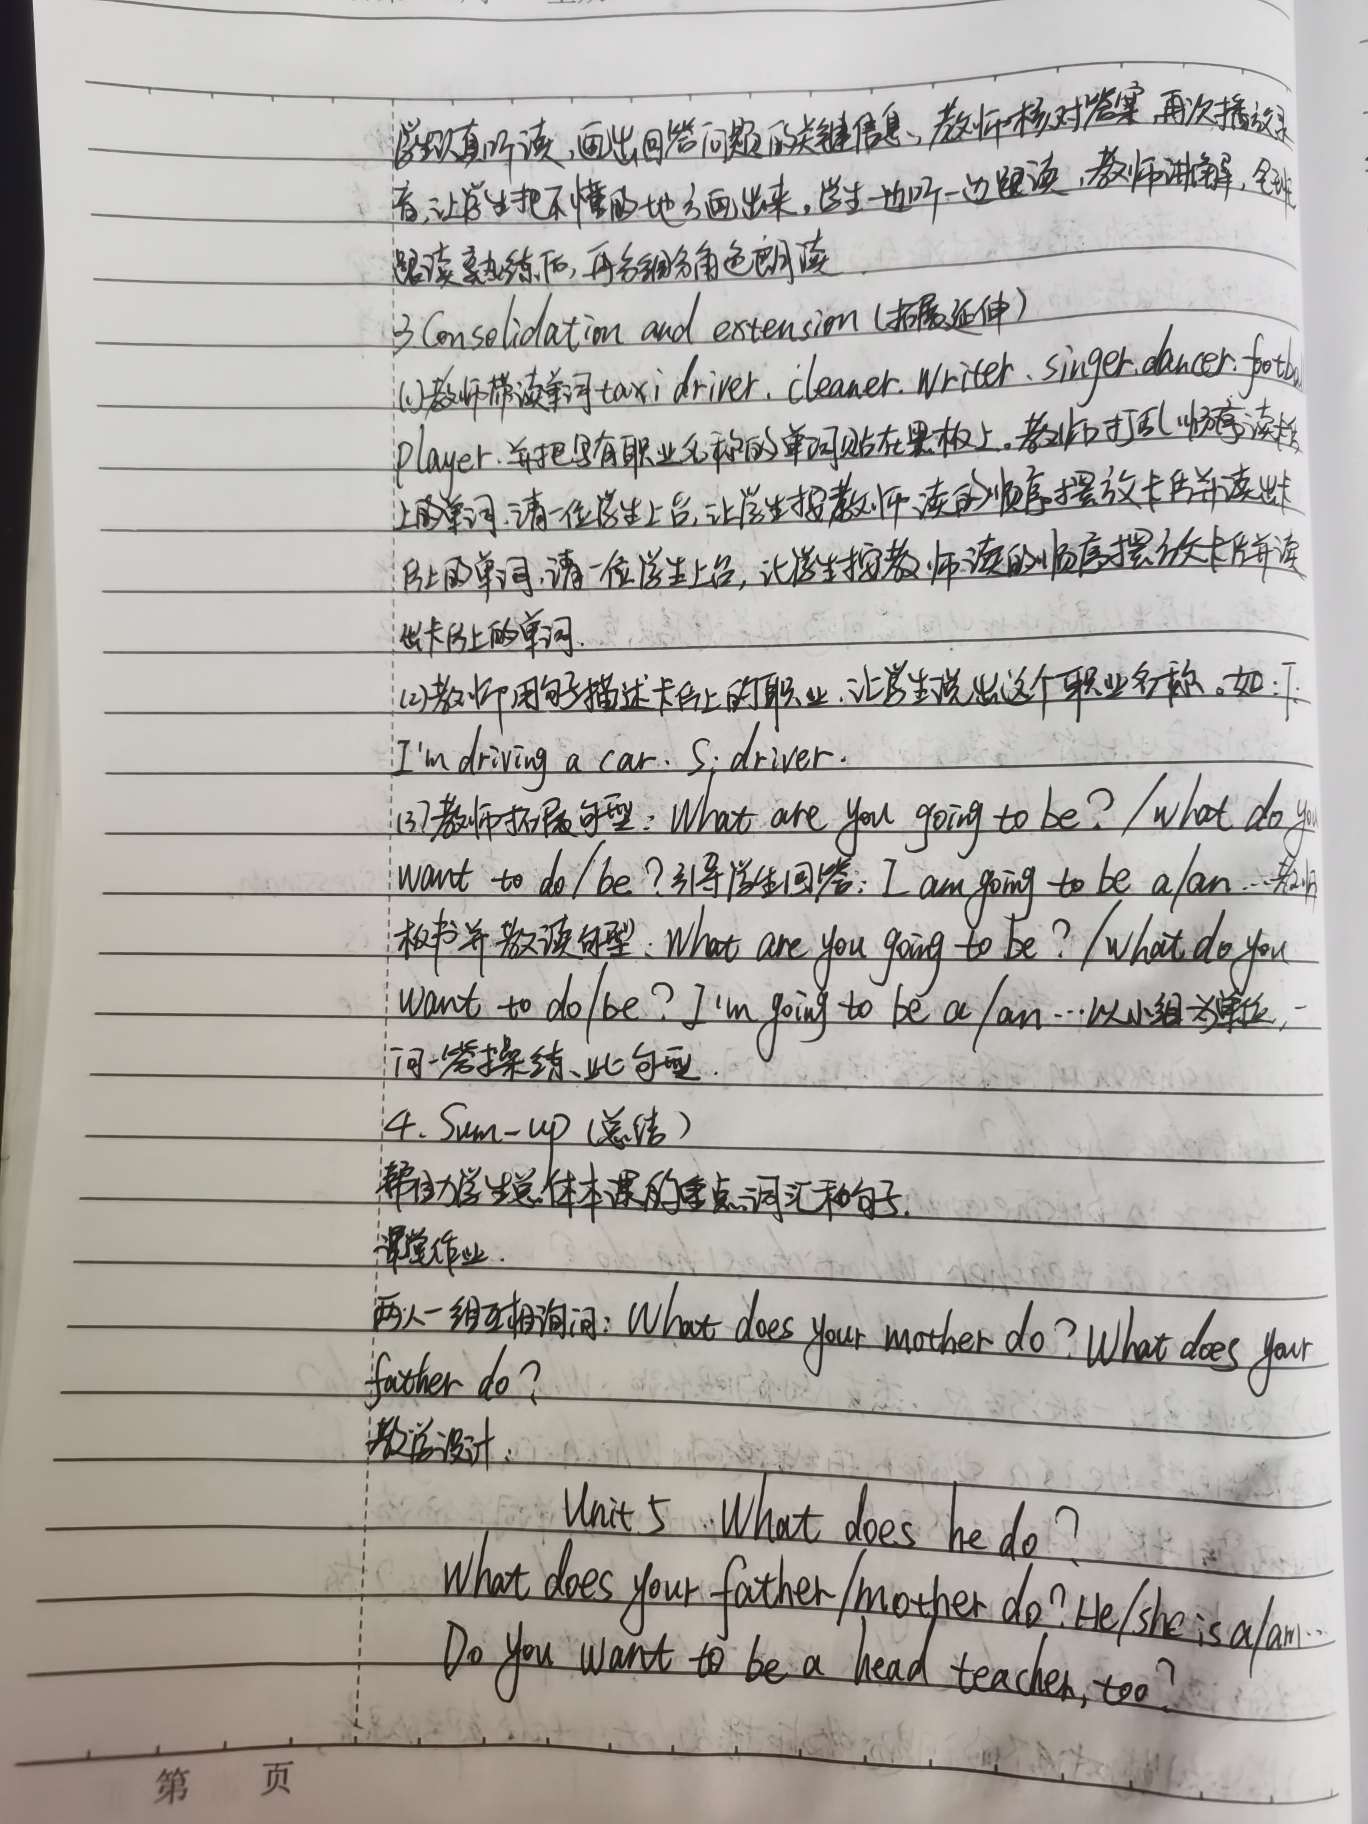 学生认真听读,画出回答问题的关键信息、教师核对答案,再次播放录
音,让学生把不懂的地方画出来,学生一边听一边跟读,教师讲解,全班
跟读熟练后,再分组分角色朗读.
3.Consolidation and extension (拓展延伸)
(1)教师带读单词taxi driver. cleaner. writer. singer. dancer. football
player.并把写有职业名称的单词贴在黑板上。教师打乱顺序读卡片
上的单词.请一位学生上台,让学生按教师读的顺序摆放卡片并读出卡
片上的单词.请一位学生上台,让学生按教师读的顺序摆放卡片并读
出卡片上的单词.
(2)教师用句子描述卡片上的职业.让学生说出这个职业名称。如:T:
I'm driving a car. S: driver.
(3)教师拓展句型: What are you going to be? /what do you
want to do/be?引导学生回答: I am going to be a/an...教师
板书并教读句型: What are you going to be? /what do you
want to do/be? I'm going to be a/an...以小组为单位,一
问一答操练、此句型.
4. Sum-up (总结)
帮助学生总体本课的重点词汇和句子.
课堂作业.
两人一组互相询问: What does your mother do? What does your
father do?
教学设计:
Unit 5 What does he do?
What does your father/mother do? He/she is a/an...
Do you want to be a head teacher, too?
第 页